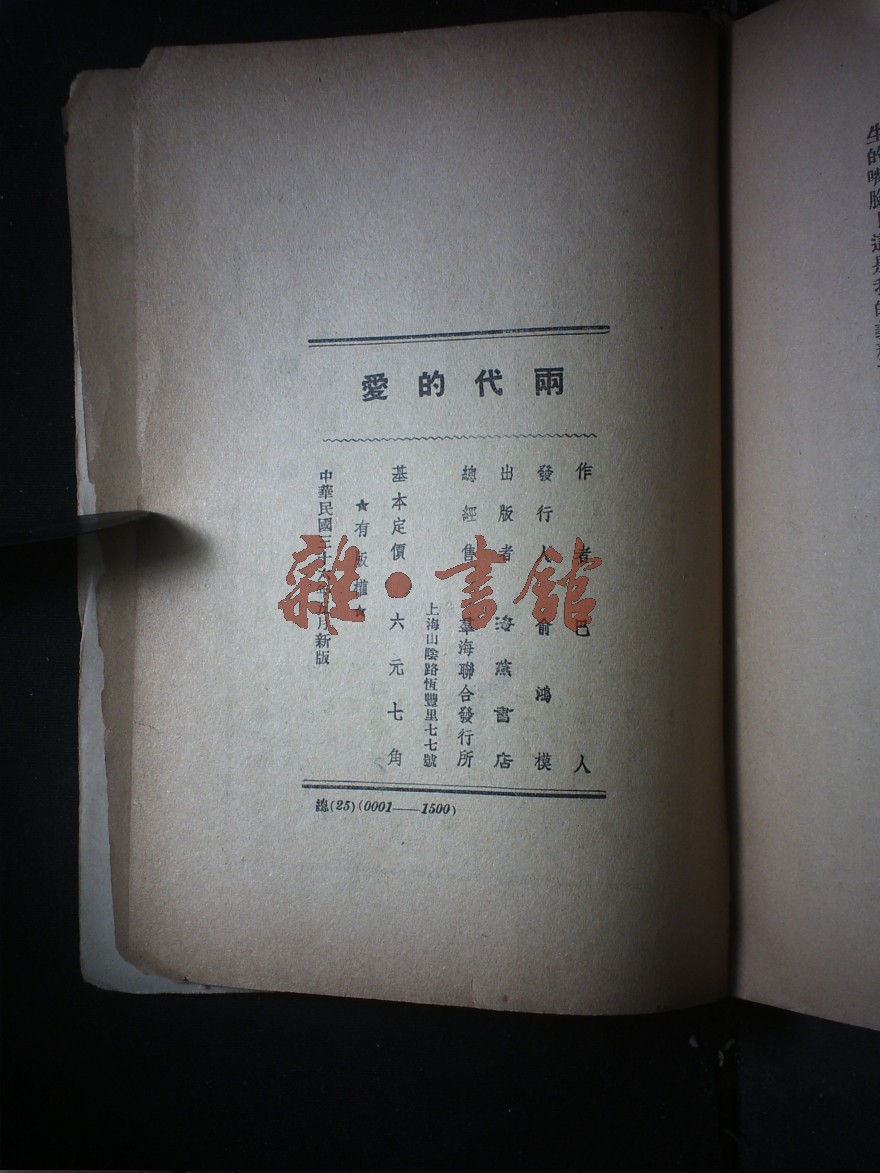 兩代的愛
作者 巴人
發行人 俞鴻模
出版者 海燕書店
總經售 羣海聯合發行所
上海山陰路恆豐里七七號
基本定價 六元七角
★有版權★
中華民國三十六年 月新版
總(25)(0001——1500)
雜·書館
生的嘴臉